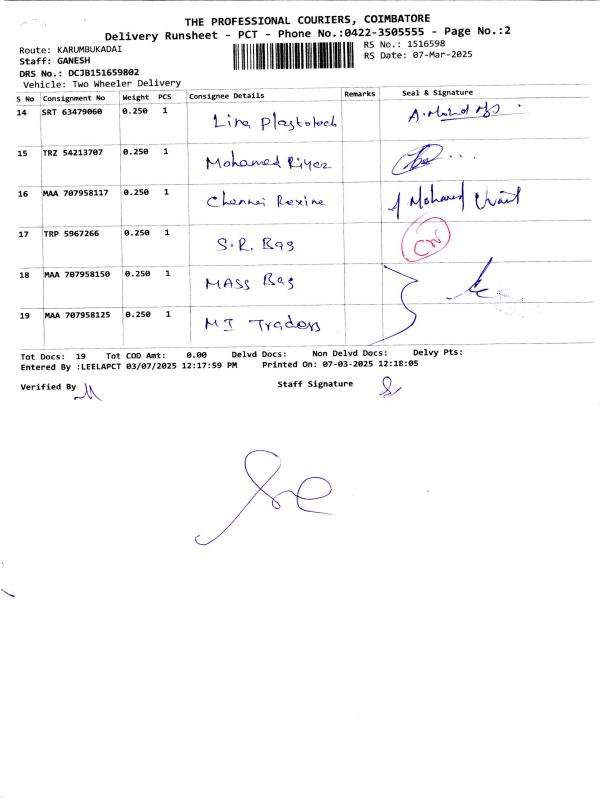 THE PROFESSIONAL COURIERS, COIMBATORE
Delivery Runsheet - PCT - Phone No.:0422-3505555 - Page No.:2
Route: KARUMBUKADAI
RS No.: 1516598
Staff: GANESH
RS Date: 07-Mar-2025
DRS No.: DCJB151659802
Vehicle: Two Wheeler Delivery
S No Consignment No Weight PCS Consignee Details Remarks Seal & Signature
14 SRT 63479060 0.250 1 Lira Plastotech
15 TRZ 54213707 0.250 1 Mohamed Riyaz
16 MAA 707958117 0.250 1 Chennai Rexine Mohamed
17 TRP 5967266 0.250 1 S.R. Bag
18 MAA 707958150 0.250 1 MASS Bag
19 MAA 707958125 0.250 1 M I Traders
Tot Docs: 19 Tot COD Amt: 0.00 Delvd Docs: Non Delvd Docs: Delvy Pts:
Entered By :LEELAPCT 03/07/2025 12:17:59 PM Printed On: 07-03-2025 12:18:05
Verified By Staff Signature